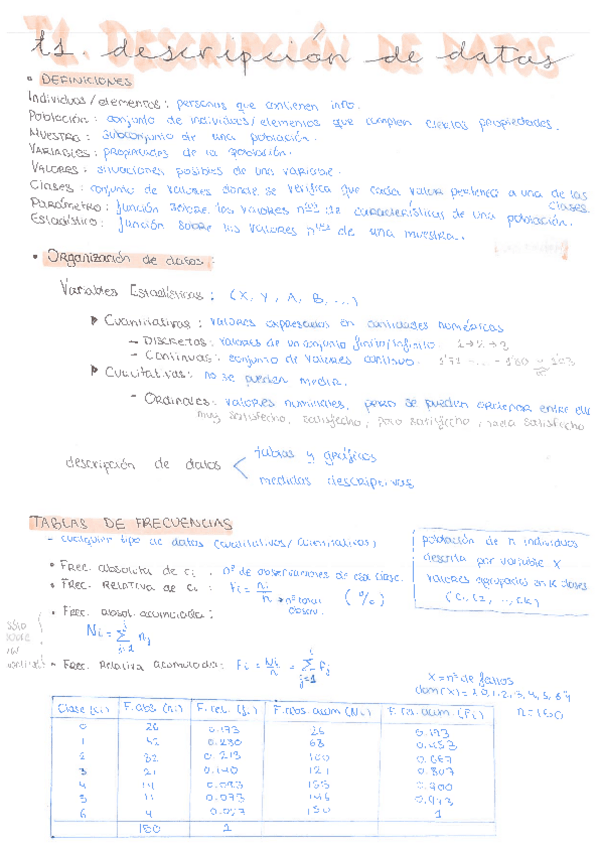 T1. DESCRIPCIÓN DE DATOS
t1. descripción de datos
• DEFINICIONES
Individuos/elementos: personas que contienen info.
Población: conjunto de individuos/elementos que cumplen ciertas propiedades.
MUESTRA: subconjunto de una población.
VARIABLES: propiedades de la población.
VALORES: situaciones posibles de una variable.
Clases: conjunto de valores donde se verifica que cada valor pertenece a una de las clases.
Parámetro: función sobre los valores n^cos de características de una población.
Estadístico: función sobre los valores n^cos de una muestra.
• Organización de datos:
Variables Estadísticas: (X, Y, A, B, ...)
▶ Cuantitativas: valores expresados en cantidades numéricas
- DISCRETOS: valores de un conjunto finito/infinito. 1→2→3
- Continuas: conjunto de valores continuo.
▶ Cualitativas: no se pueden medir.
- Ordinales: valores nominales, pero se pueden ordenar entre ell
muy satisfecho, satisfecho, poco satisfecho, nada satisfecho
descripción de datos < tablas y gráficos
medidas descriptivas
TABLAS DE FRECUENCIAS
- cualquier tipo de datos (cualitativos/cuantitativos)
población de n individuos
descrita por variable X
valores agrupados en K clases
(C1, C2, ..., CK)
• Frec. absoluta de ci: nº de observaciones de esa clase.
• Frec. Relativa de ci: fi = ni/n → nº total observ. (%)
• Frec. absol. acumulada:
Ni = Σ nj
j=1
• Frec. Relativa acumulada: Fi = Ni/n = Σ fj
j=1
X = nº de fallos
dom(X) = {0,1,2,3,4,5,6}
n=150
Clase (ci) F. abs. (ni) F. rel. (fi) F. abs. acum (Ni) F. rel. acum. (Fi)
0 26 0.173 26 0.173
1 42 0.280 68 0.453
2 32 0.213 100 0.667
3 21 0.140 121 0.807
4 14 0.093 135 0.900
5 11 0.073 146 0.973
6 4 0.027 150 1
150 1